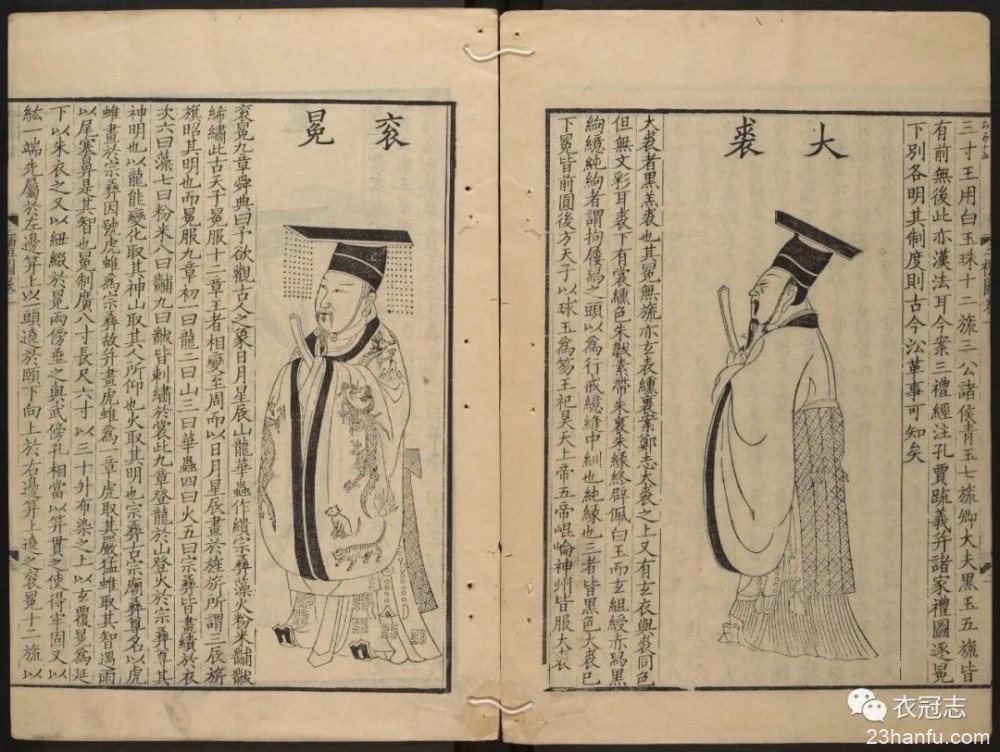 三寸王用白玉珠十二旒三公諸侯青玉七旒卿大夫黑玉五旒皆
有前無後此亦漢法耳今案三禮經注孔賈疏義并諸家禮圖逐冕
下別各明其制度則古今沿革事可知矣
大裘
大裘者黑羔裘也其冕無旒亦玄表纁裏案鄭志大裘之上又有玄衣與裘同色
但無文彩耳裘下有裳纁色朱韍素帶朱裏朱緣終辟佩白玉而玄組綬赤舄黑
絇繶純絇者謂拘屨舄之頭以為行戒繶縫中紃也純緣也三者皆黑色大裘已
下冕皆前圓後方天子以球玉為笏王祀昊天上帝五帝崐崘神州皆服大裘
袞冕
袞冕九章舜典曰予欲觀古人之象日月星辰山龍華蟲作繢宗彝藻火粉米黼黻
絺繡此古天子冕服十二章王者相變至周而以日月星辰畫於旌旂所謂三辰旂
旗昭其明也而冕服九章初一曰龍二曰山三曰華蟲四曰火五曰宗彝皆畫繢於衣
次六曰藻七曰粉米八曰黼九曰黻皆刺繡於裳此九章登龍於山登火於宗彝尊其
神明也以龍能變化取其神山取其人所仰也火取其明也宗彝古宗廟彝尊名以虎
蜼畫於宗彝因號虎蜼為宗彝故并畫虎蜼為一章虎取其嚴猛蜼取其智遇雨
以尾塞鼻是其智也冕制廣八寸長尺六寸以三十升布染之上以玄覆冕為延
下以朱衣之又以紐綴於冕兩傍垂之與武傍孔相當以笄貫之使得牢固又以
紘一端先屬於左邊笄上以頭遶於頤下向上於右邊笄上遶之袞冕十二旒以
衣冠志
23hanfu.com